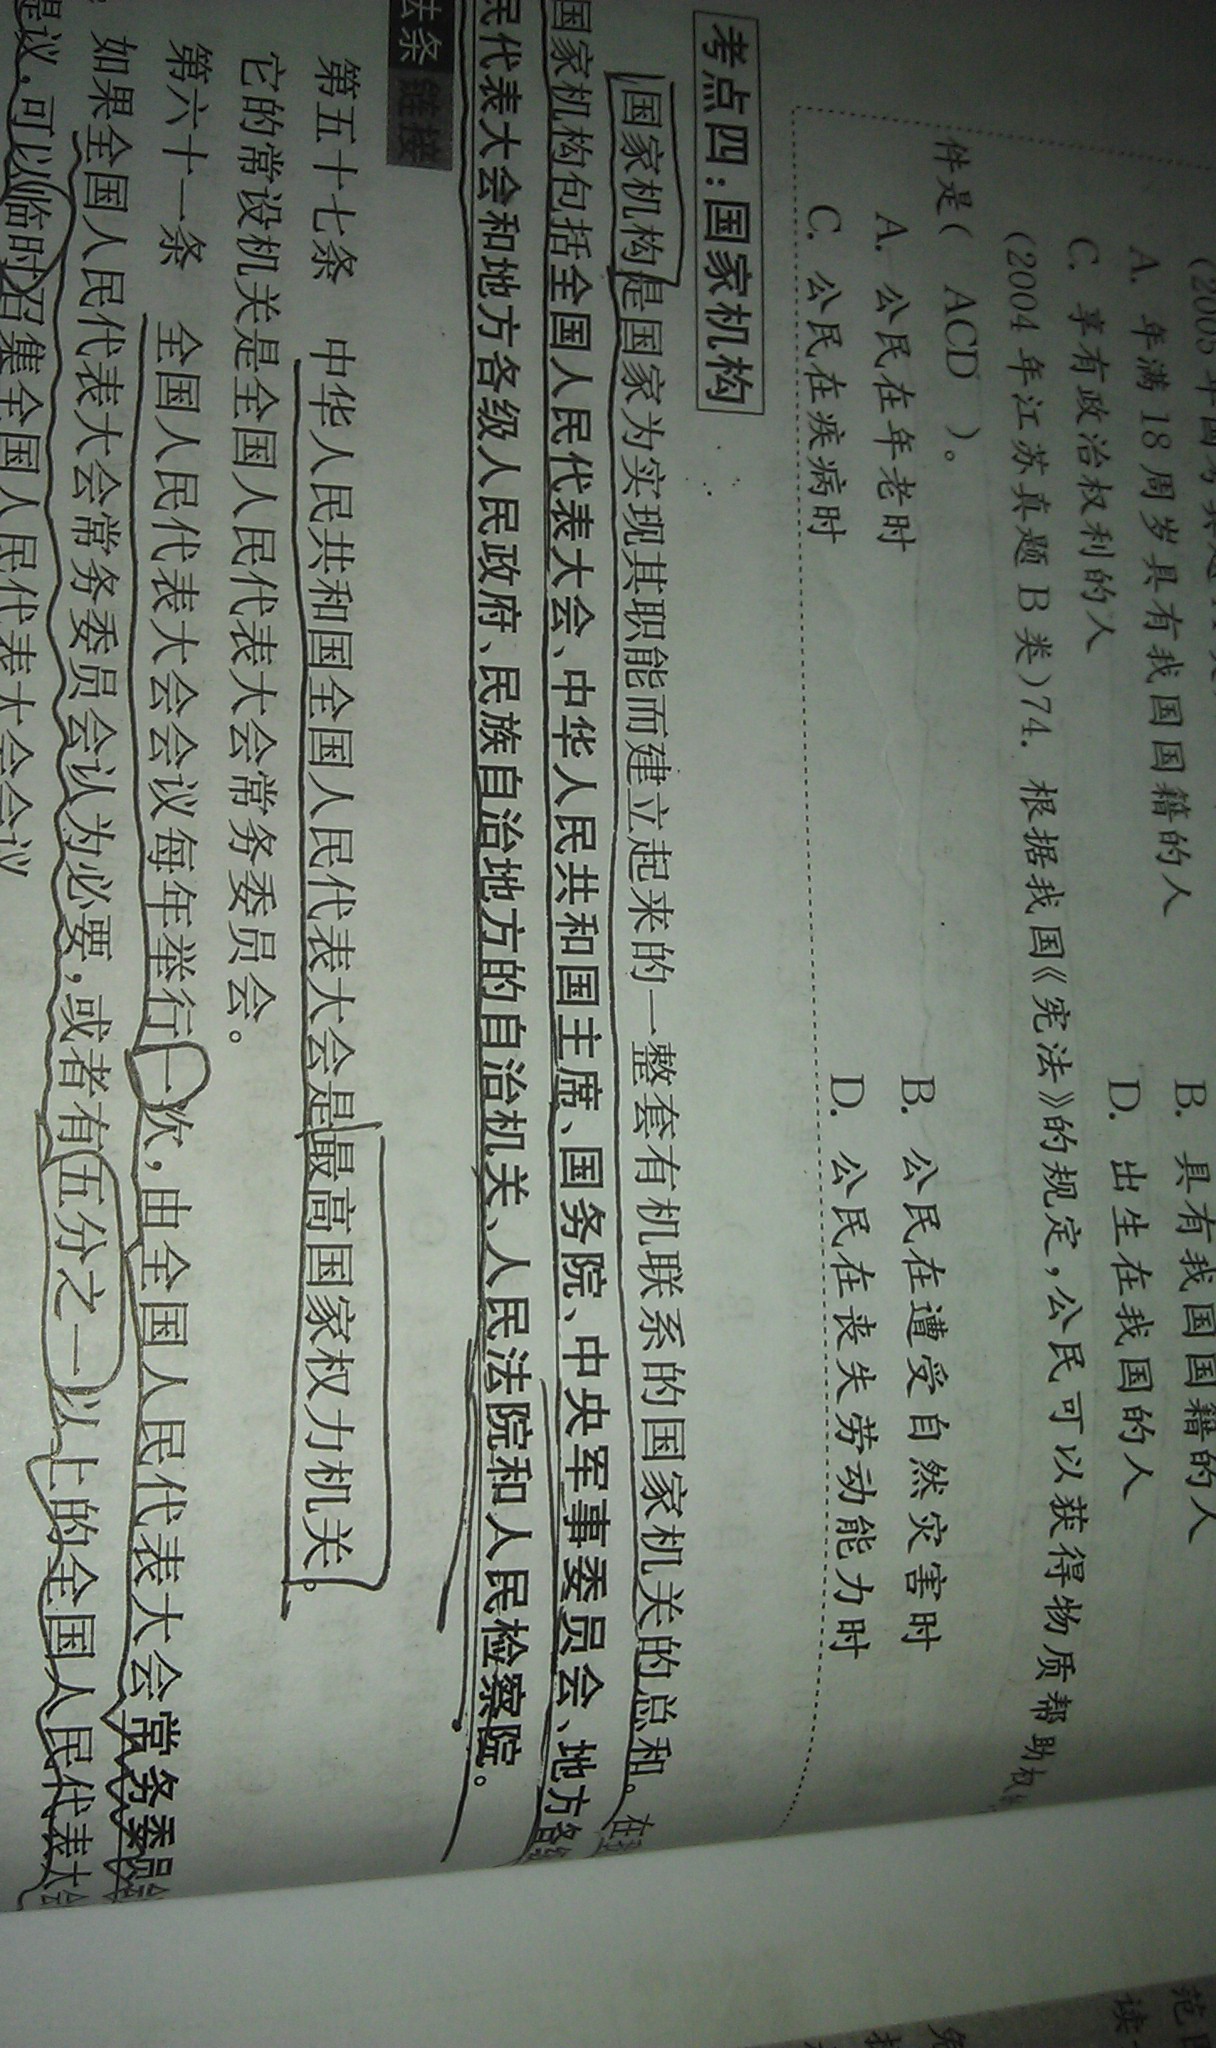 (2005年国考真题
A. 年满18周岁具有我国国籍的人 B. 具有我国国籍的人
C. 享有政治权利的人 D. 出生在我国的人
(2004年江苏真题B类)74. 根据我国《宪法》的规定,公民可以获得物质帮助权
件是( ACD )。
A. 公民在年老时 B. 公民在遭受自然灾害时
C. 公民在疾病时 D. 公民在丧失劳动能力时
考点四:国家机构
国家机构是国家为实现其职能而建立起来的一整套有机联系的国家机关的总和。在我
国家机构包括全国人民代表大会、中华人民共和国主席、国务院、中央军事委员会、地方各级
民代表大会和地方各级人民政府、民族自治地方的自治机关、人民法院和人民检察院。
法条 链接
第五十七条 中华人民共和国全国人民代表大会是最高国家权力机关。
它的常设机关是全国人民代表大会常务委员会。
第六十一条 全国人民代表大会会议每年举行一次,由全国人民代表大会常务委员会
如果全国人民代表大会常务委员会认为必要,或者有五分之一以上的全国人民代表大会
提议,可以临时召集全国人民代表大会会议